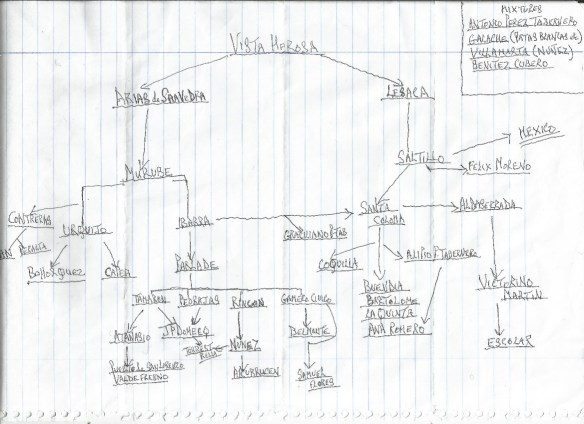 MIXTURES
ANTONIO PEREZ TABERNERO
GALACHE (PATAS BLANCAS de)
VILLAMARTA (NUÑEZ)
BENITEZ CUBERO
VISTA HEROSA
ARIAS de SAAVEDRA
LESACA
MEXICO
SALTILLO
FELIX MORENO
MURUBE
CONTRERAS
URQUIJO
IBARRA
SANTA
COLOMA
ALBASERRADA
GRACILIANO P TAB
BOHORQUEZ
CAPEA
PARLADE
COQUILLA
ALIPIO P TABERNERO
BUENDIA
BARTOLOME
LA QUINTA
ANA ROMERO
VICTORINO
MARTIN
TAMARON
PEDRAJAS
RINCON
GAMERO CIVICO
ATANASIO
JP DOMECQ
NUÑEZ
BELMONTE
ESCOLAR
PUERTO de SAN LORENZO
VALDEFRESNO
TORREST
RELLA
SAMUEL
FLORES